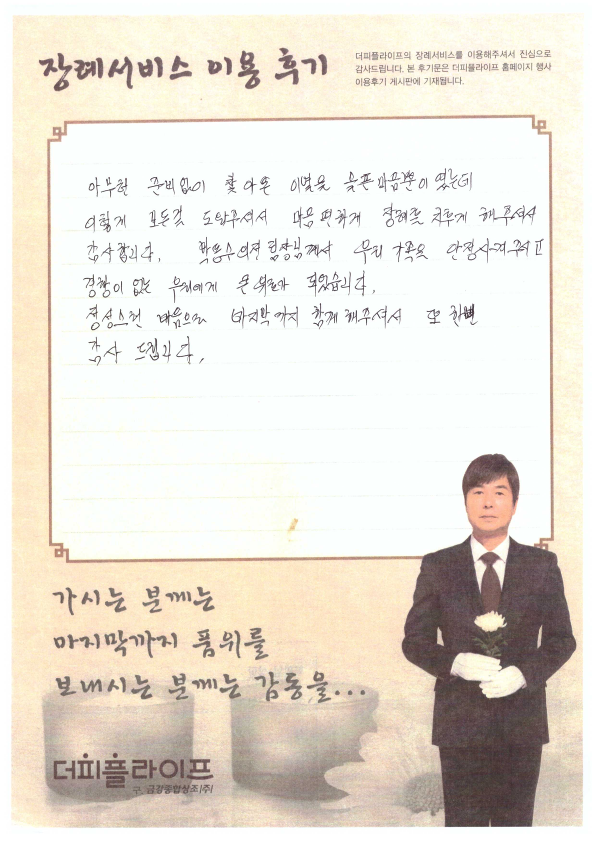 장례서비스 이용 후기
더피플라이프의 장례서비스를 이용해주셔서 진심으로
감사드립니다. 본 후기문은 더피플라이프 홈페이지 행사
이용후기 게시판에 기재됩니다.
아무런 준비없이 찾아온 이별은 슬픈마음뿐이였는데
이렇게 모든것 도와주셔서 마음 편하게 장례를 치루게 해주셔서
감사합니다. 팀장님께서 우리 가족을 안정시켜주시고
경황이 없는 우리에게 큰 위로가 되었습니다.
정성스런 마음으로 마지막까지 함께해주셔서 또 한번
감사 드립니다.
가시는 분께는
마지막까지 품위를
보내시는 분께는 감동을...
더피플라이프
구. 금강종합상조(주)